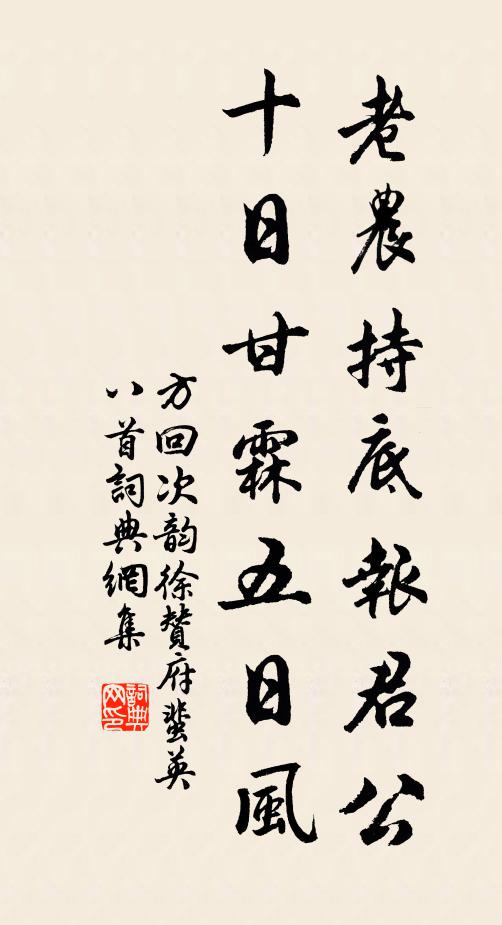 老農持底報君公
十日甘霖五日風
方回次韵徐賛府蜚英
八首詞典網集
詞典网印